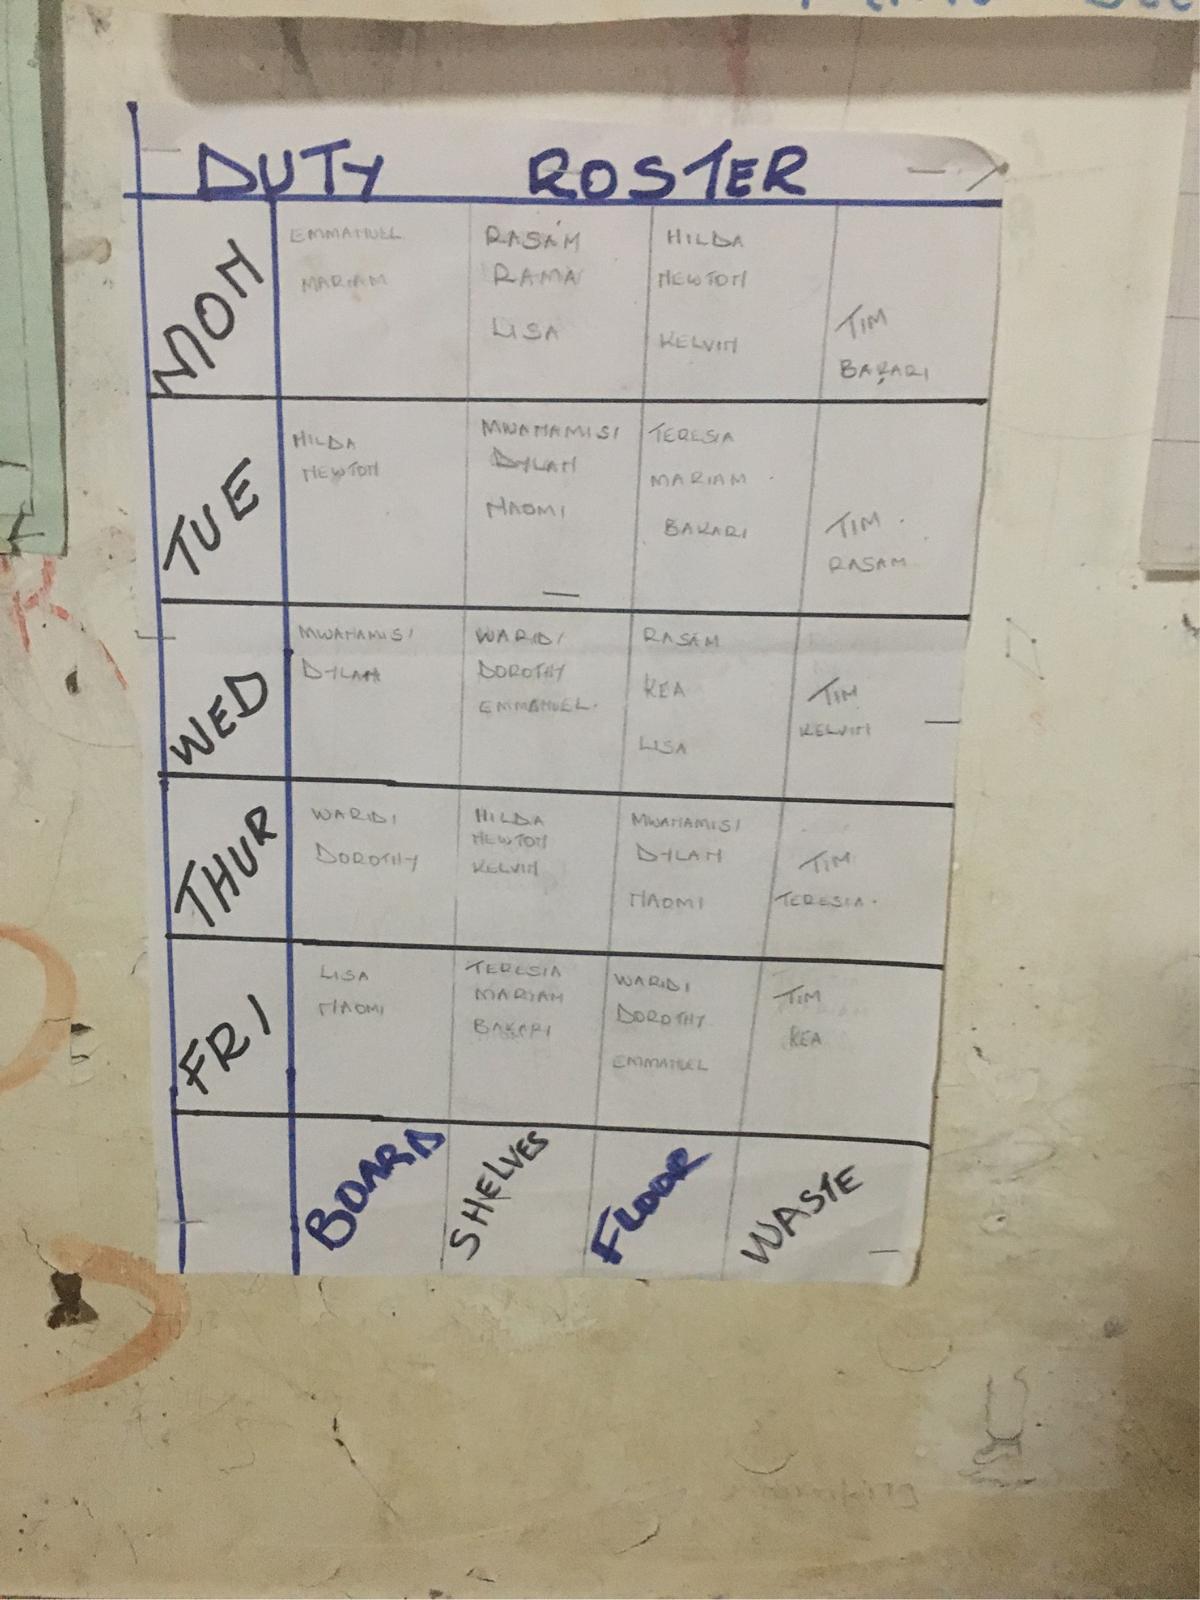 DUTY ROSTER
MON
EMMANUEL
MARIAM
RASAM
RAMA
LISA
HILDA
NEWTON
KELVIN
TIM
BAKARI
TUE
HILDA
NEWTON
MWAHAMISI
DYLAN
NAOMI
TERESIA
MARIAM
BAKARI
TIM
RASAM
WED
MWAHAMISI
DYLAN
WARIDI
DOROTHY
EMMANUEL
RASAM
KEA
LISA
TIM
KELVIN
THUR
WARIDI
DOROTHY
HILDA
NEWTON
KELVIN
MWAHAMISI
DYLAN
NAOMI
TIM
TERESIA
FRI
LISA
NAOMI
TERESIA
MARIAM
BAKARI
WARIDI
DOROTHY
EMMANUEL
TIM
KEA
BOARD
SHELVES
FLOOR
WASTE